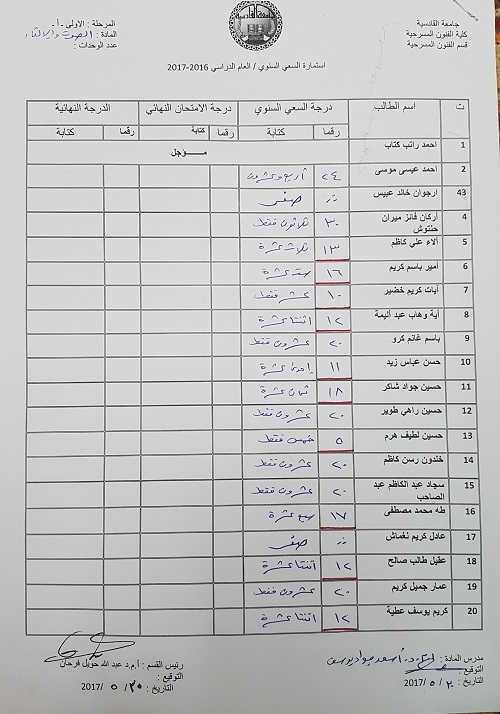 جامعة القادسية
كلية الفنون المسرحية
قسم الفنون المسرحية
المرحلة : الاولى -أ-
المادة : الصوت والالقاء
عدد الوحدات :
استمارة السعي السنوي / العام الدراسي 2016-2017
ت اسم الطالب درجة السعي السنوي درجة الامتحان النهائي الدرجة النهائية
رقما كتابة رقما كتابة رقما كتابة
1 احمد راتب كتاب مـــؤجل
2 احمد عيسى موسى ٢٤ اربع وعشرون
43 ارجوان خالد عبيس صفر
4 أركان فائز ميران حنتوش ٣٠ ثلاثون فقط
5 ألاء علي كاظم ١٣ ثلاث عشرة
6 أمير باسم كريم ١٦ ستة عشرة
7 أيات كريم خضير ١٠ عشر فقط
8 أية وهاب عبد اليمة ١٢ اثنتا عشرة
9 باسم غانم كرو ٢٠ عشرون فقط
10 حسن عباس زيد ١١ إحدى عشرة
11 حسين جواد شاكر ١٨ ثمان عشرة
12 حسين راهي طوير ٢٠ عشرون فقط
13 حسين لطيف هرم ٥ خمس فقط
14 خلدون رسن كاظم ٢٠ عشرون فقط
15 سجاد عبد الكاظم عبد الصاحب ٢٠ عشرون فقط
16 طه محمد مصطفى ١٧ سبع عشرة
17 عادل كريم نغماش صفر
18 عقيل طالب صالح ١٢ اثنتا عشرة
19 عمار جميل كريم ٢٠ عشرون فقط
20 كريم يوسف عطية ١٢ اثنتا عشرة
مدرس المادة : أسعد جواد يوسف
التوقيع :
التاريخ : ٢ / ٥ /2017
رئيس القسم : أ.م.د عبد الله حويل فرحان
التوقيع :
التاريخ : ٣٠ / ٥ /2017